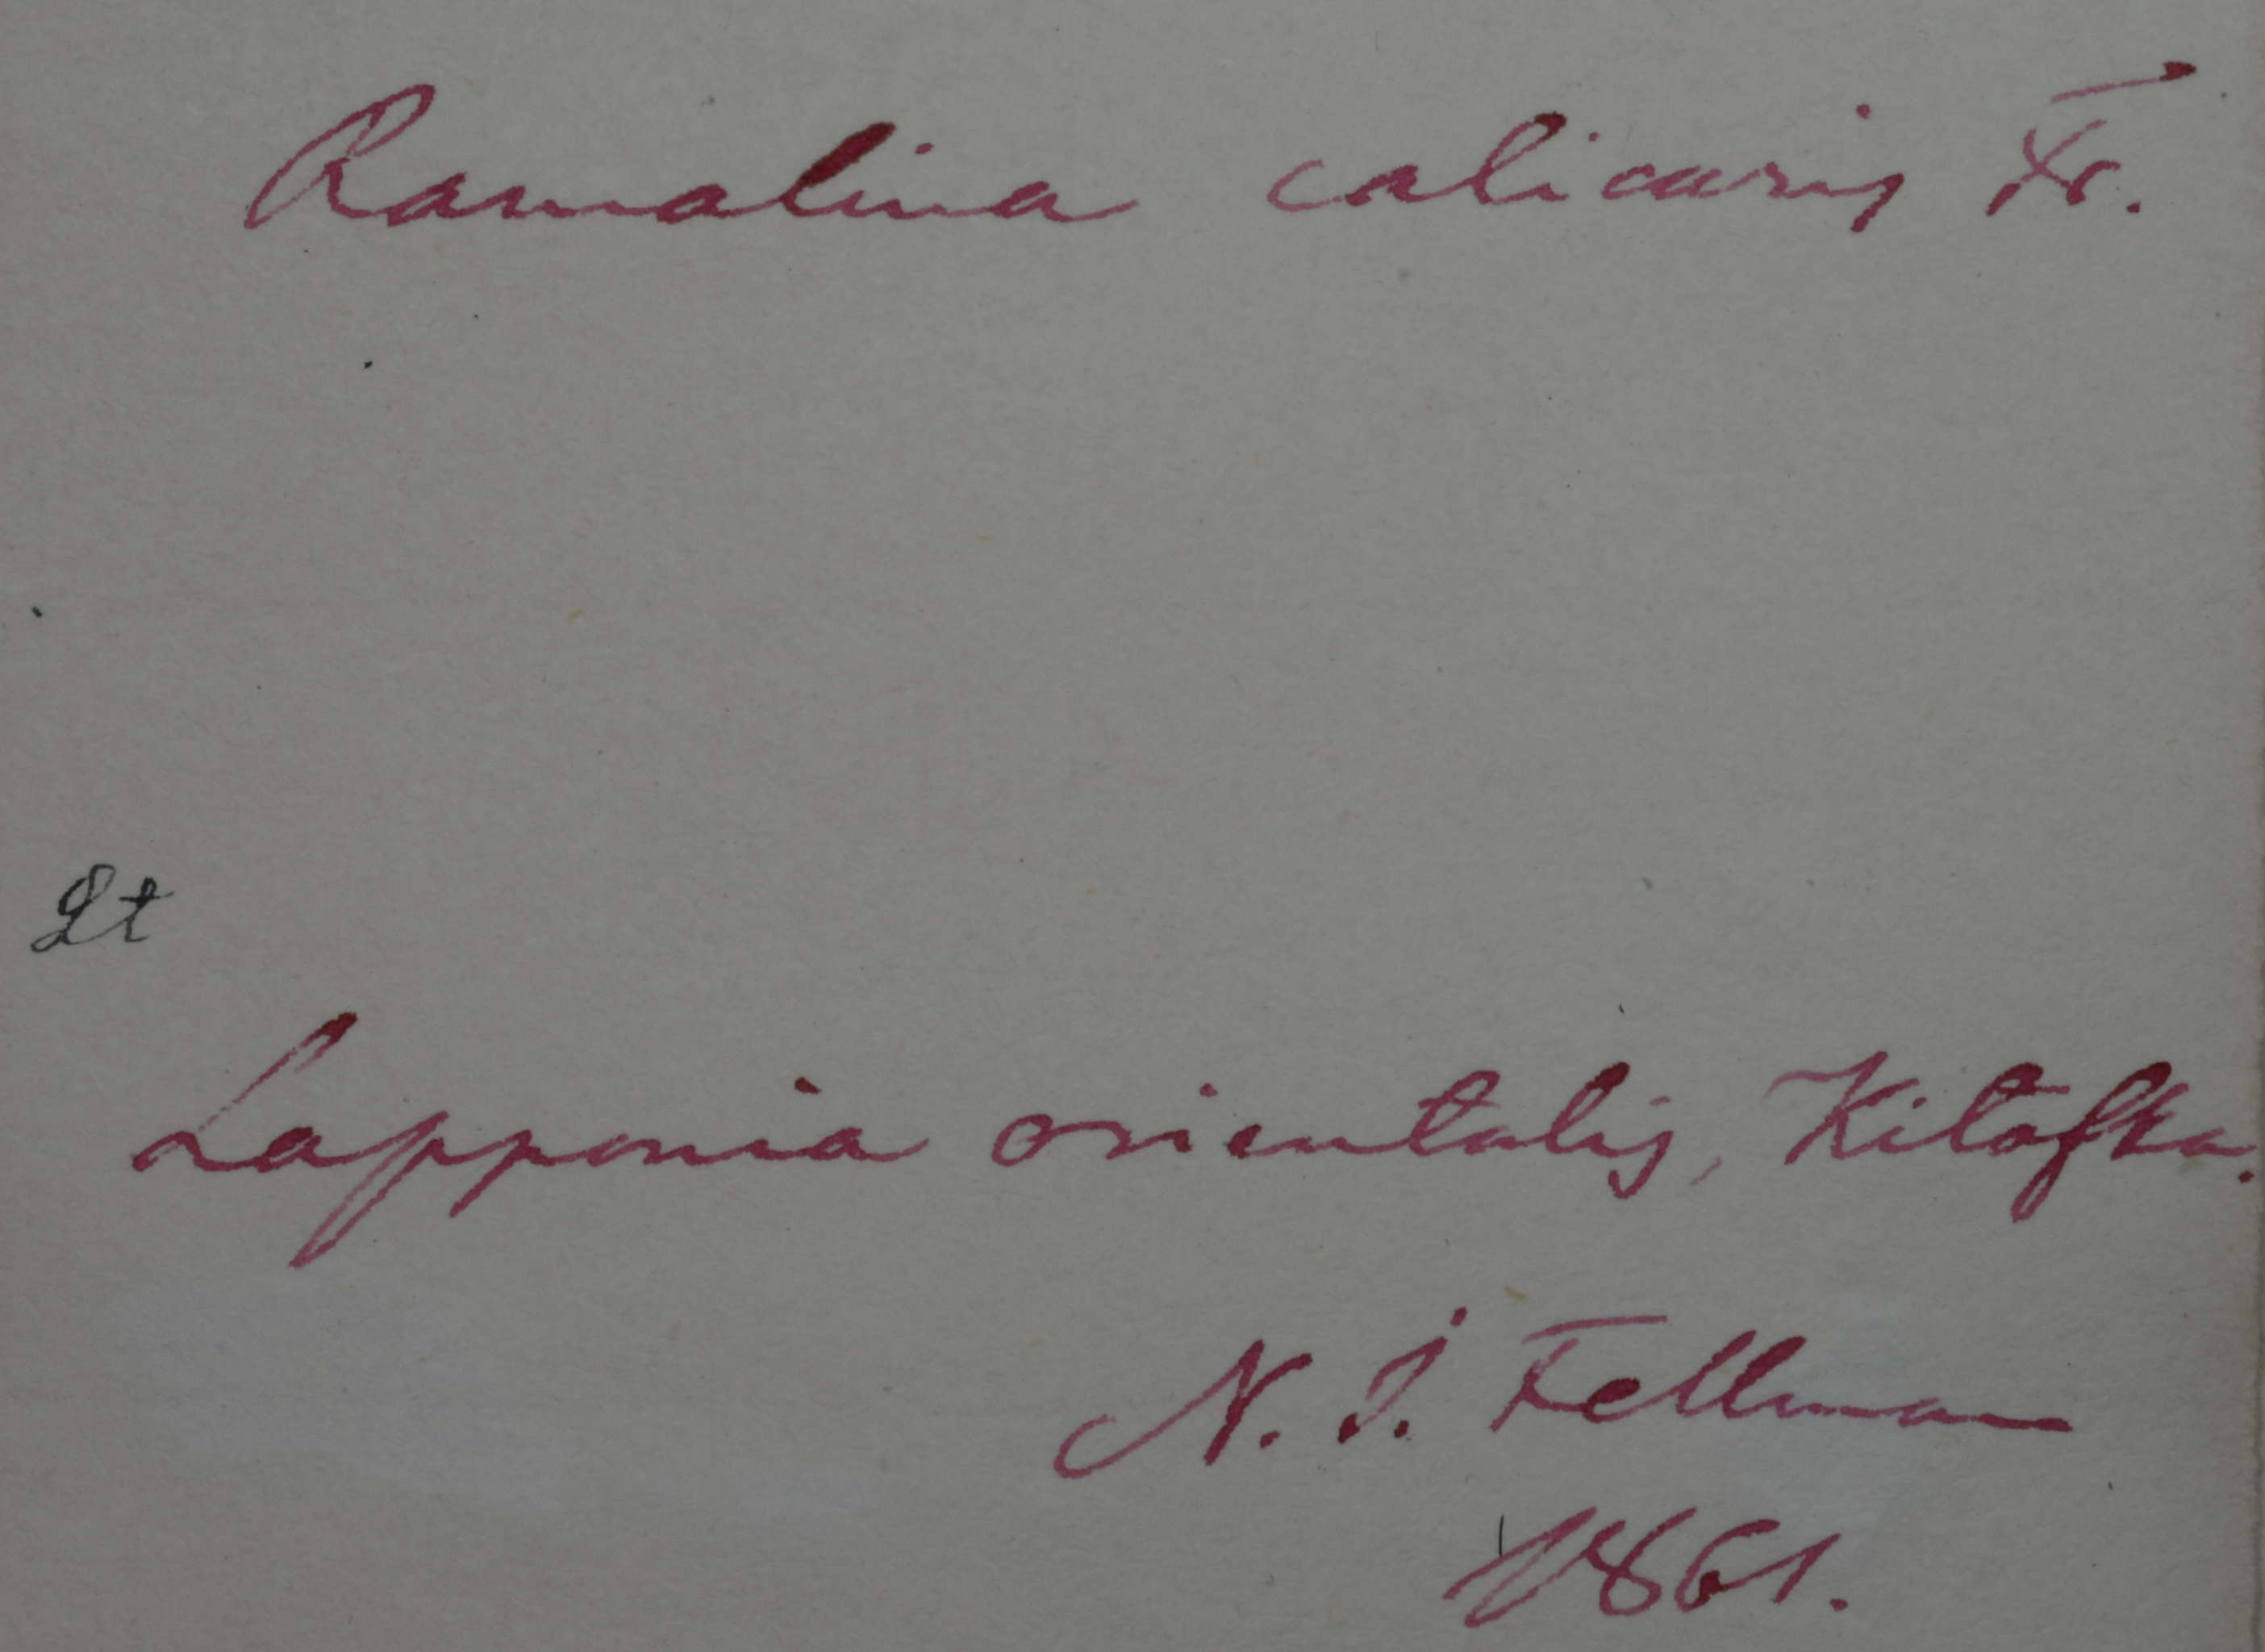 Ramalina calicaris Fr.
Lt
Lapponia orientalis, Kitofka.
N. I. Fellman
1861.